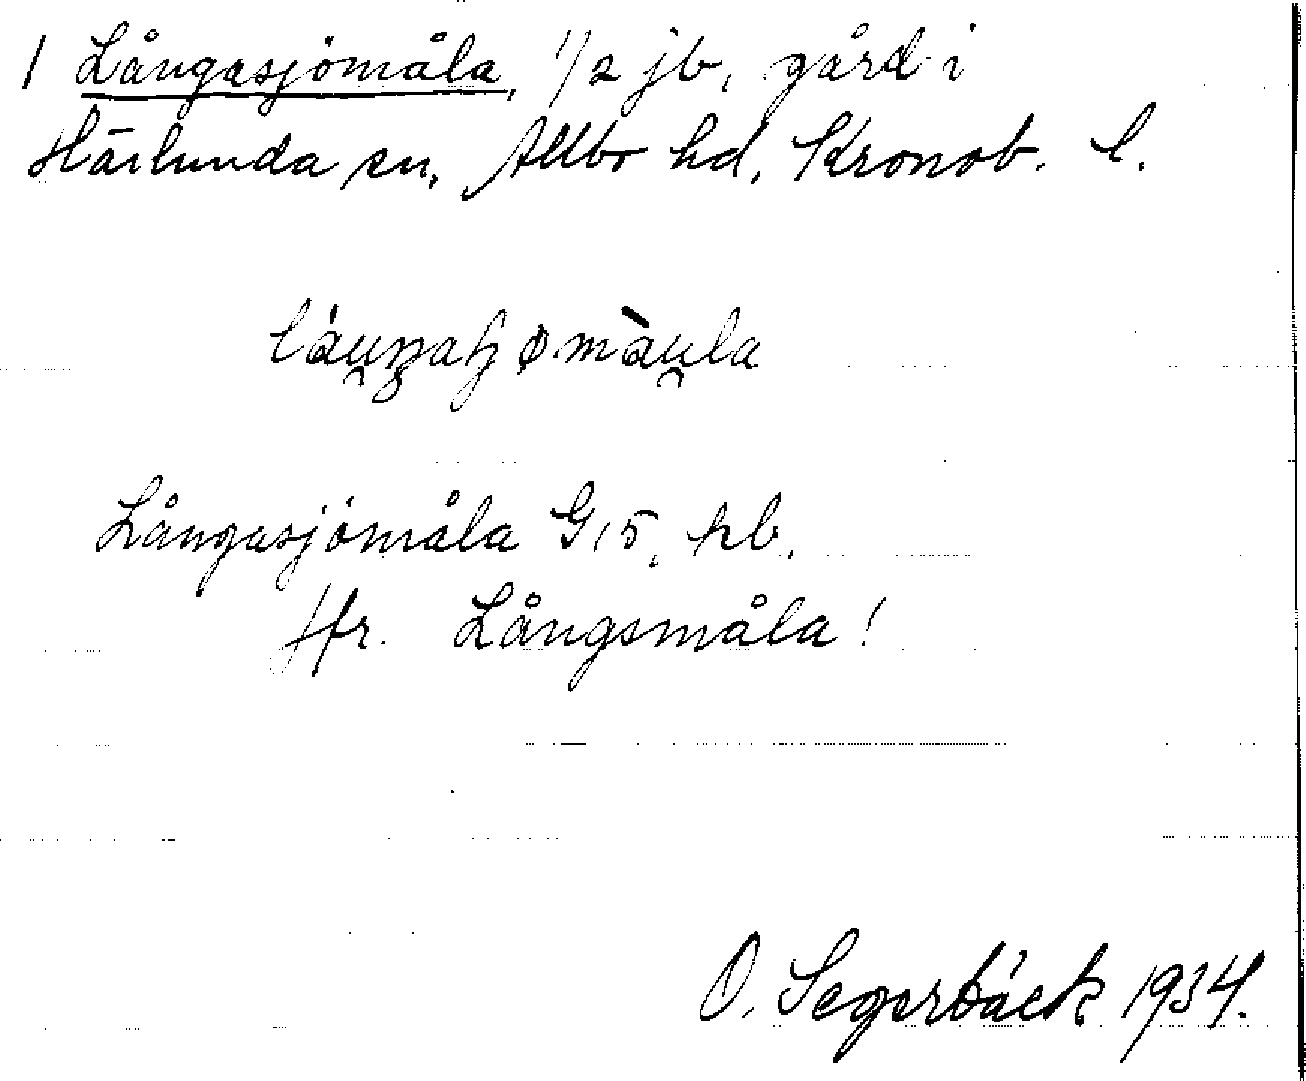 1 Långasjömåla, 1/2 jb, gård i
Härlunda sn, Allbo hd, Kronob. l.
láu̯ŋaɧømàu̯la
Långasjömåla G15, hb.
Jfr. Långsmåla!
O. Segerbäck 1934.